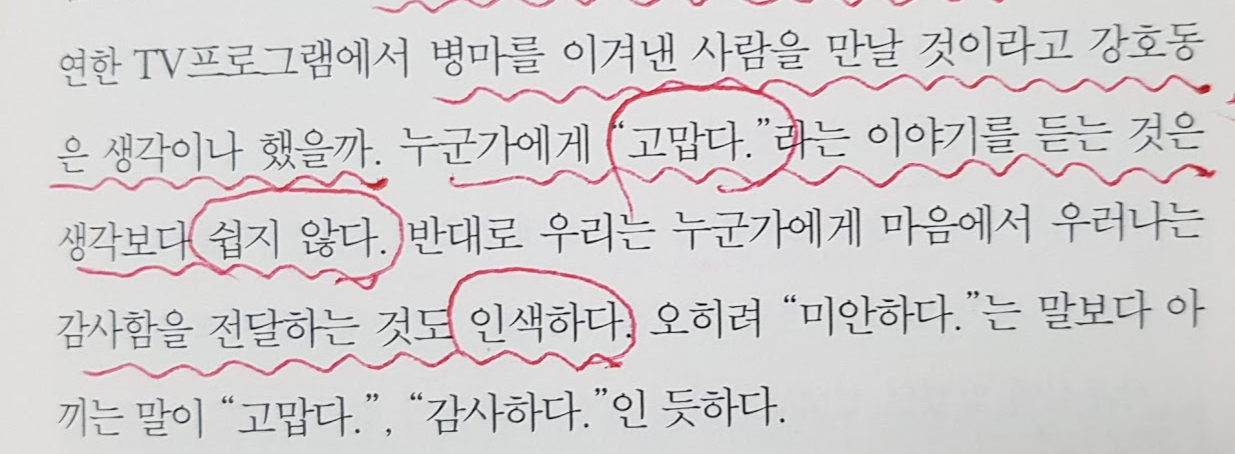 연한 TV프로그램에서 병마를 이겨낸 사람을 만날 것이라고 강호동
은 생각이나 했을까. 누군가에게 “고맙다.”라는 이야기를 듣는 것은
생각보다 쉽지 않다. 반대로 우리는 누군가에게 마음에서 우러나는
감사함을 전달하는 것도 인색하다. 오히려 “미안하다.”는 말보다 아
끼는 말이 “고맙다.”, “감사하다.”인 듯하다.